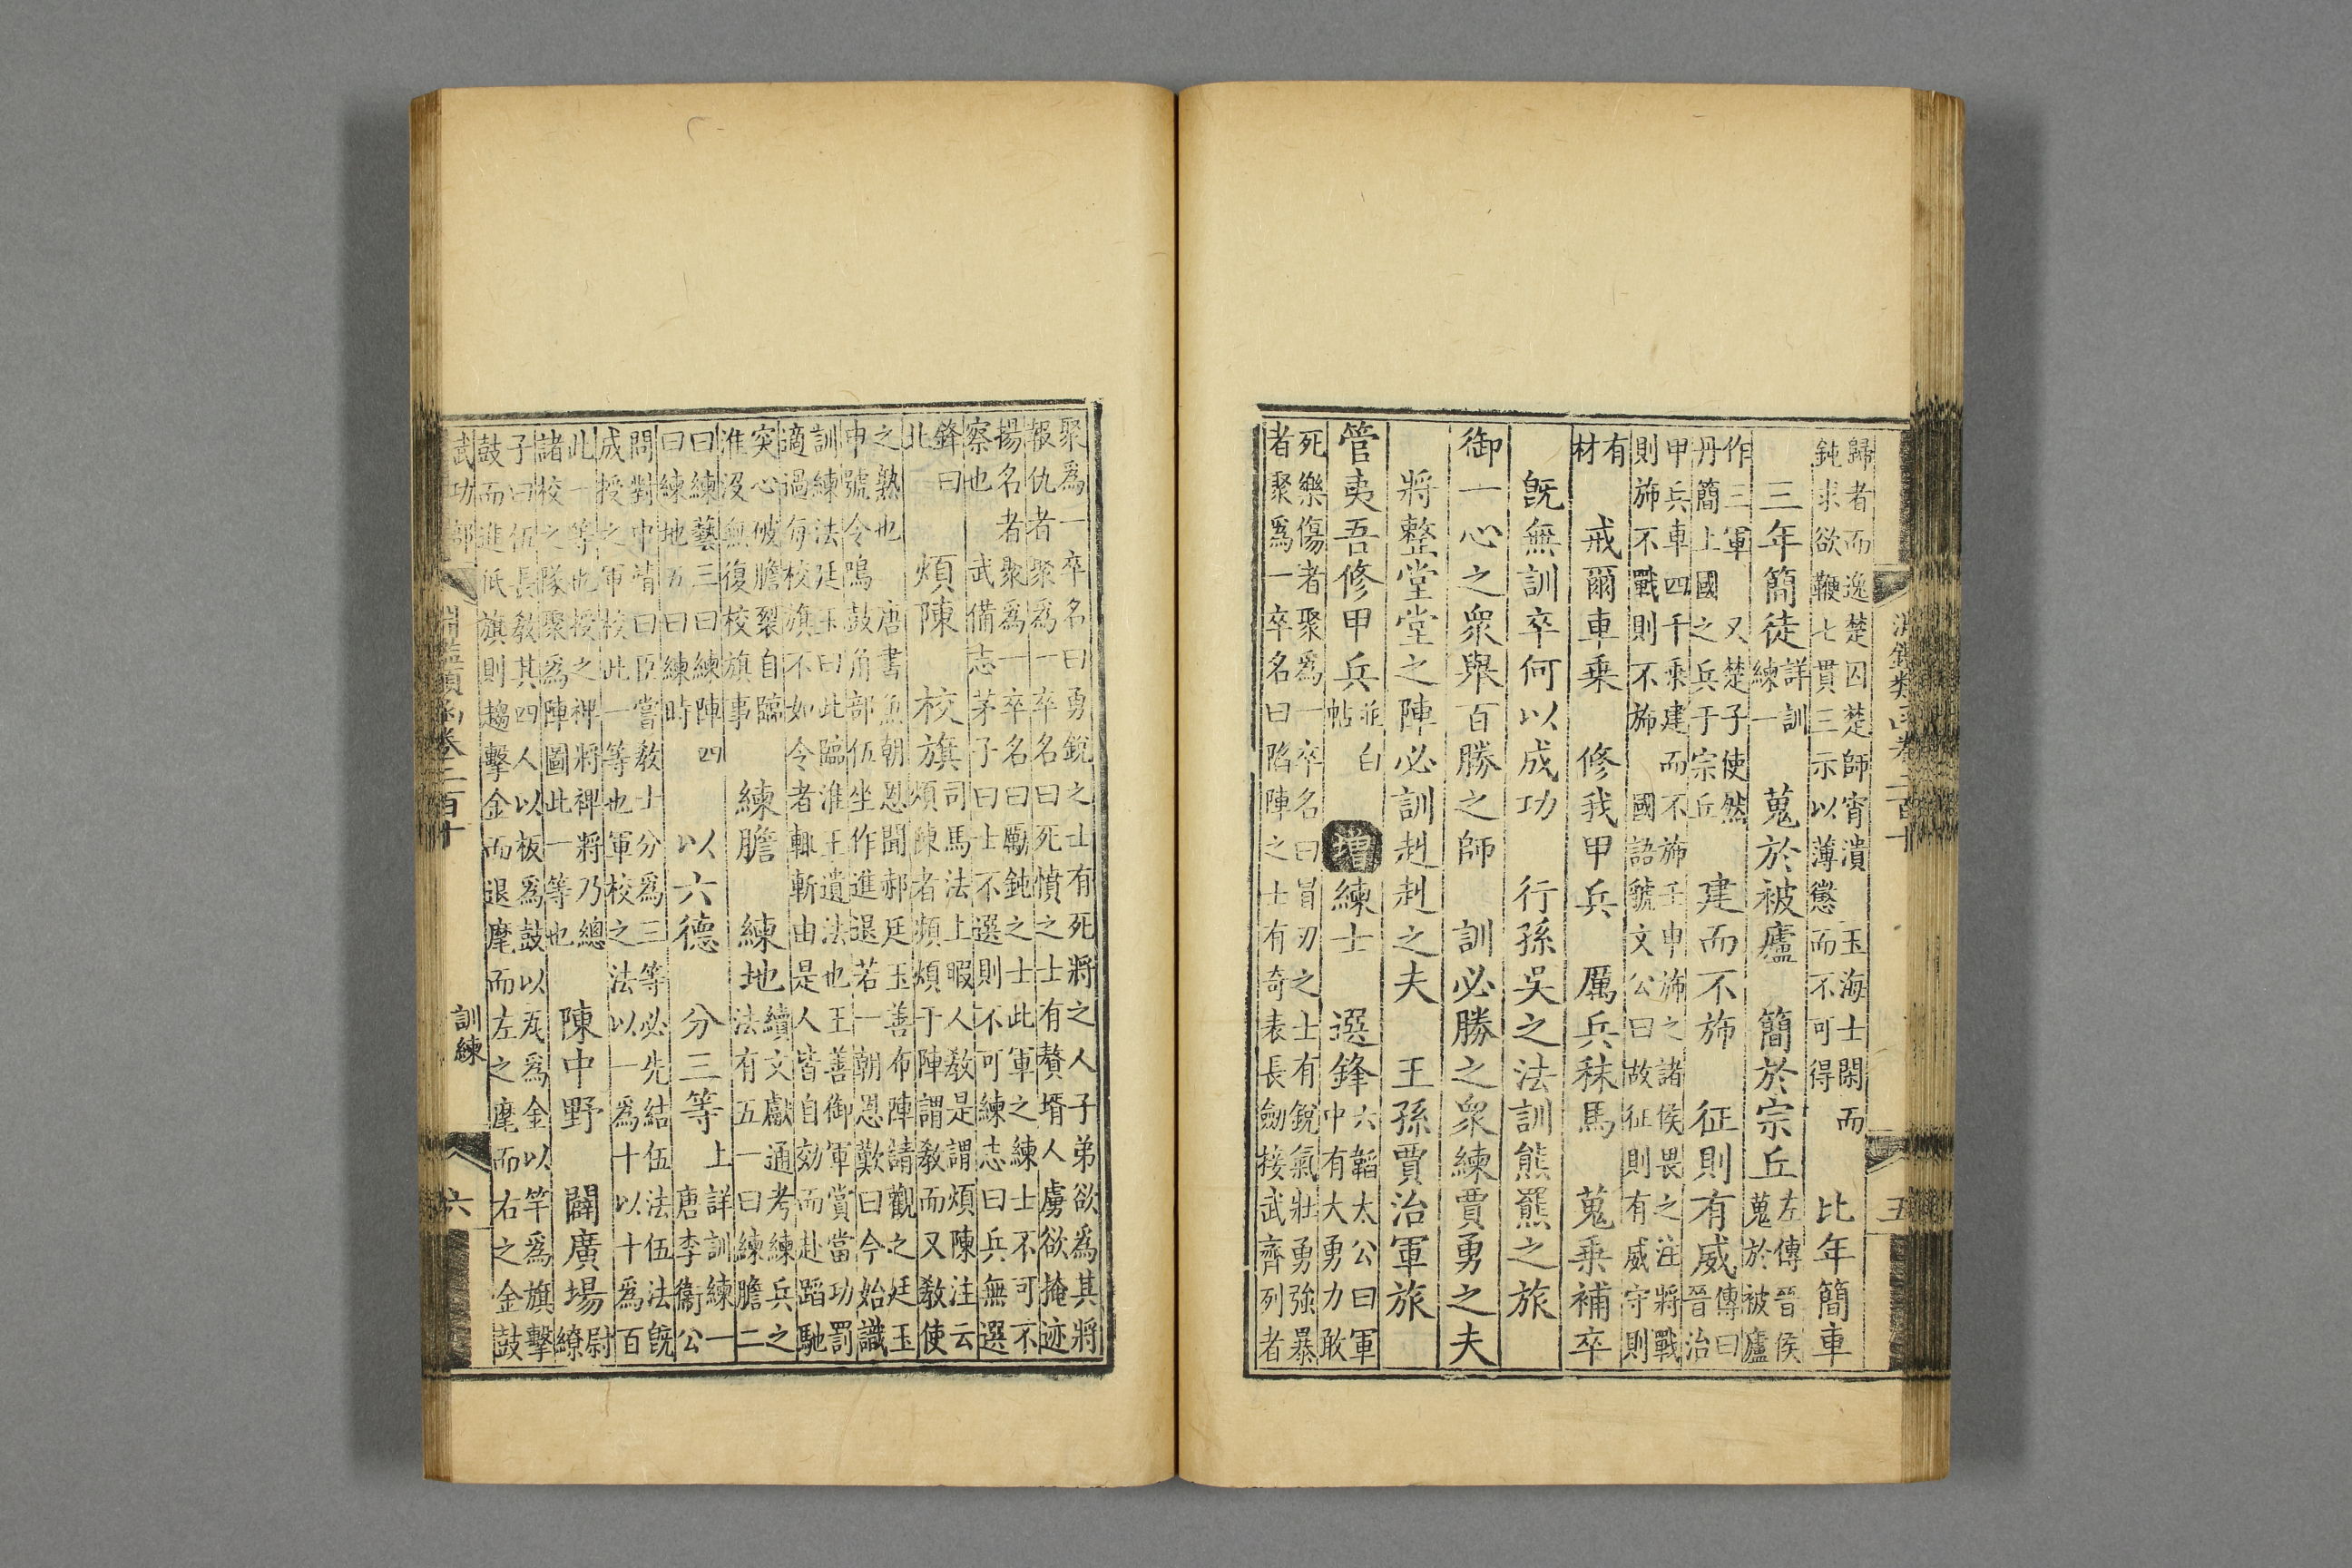 淵鑑類函卷二百十 五
歸者而逸楚囚楚師宵潰
鈍求欲鞭七貫三示以薄懲 玉海士閑而
而不可得 比年簡車
三年簡徒 詳訓
練一 蒐於被廬 簡於宗丘 左傳晉侯
蒐於被廬
作三軍 又楚子使然
丹簡上國之兵于宗丘 建而不斾 征則有威 傳曰
晉治
甲兵車四千乘建而不斾壬申斾之諸侯畏之注將戰
則斾不戰則不斾 國語虢文公曰故征則有威守則
有
材 戒爾車乗 修我甲兵 厲兵秣馬 蒐乗補卒
旣無訓卒何以成功 行孫吳之法訓熊羆之旅
御一心之衆舉百勝之師 訓必勝之衆練賈勇之夫
將整堂堂之陣必訓赳赳之夫 王孫賈治軍旅
管夷吾修甲兵 並白
帖 增 練士 選鋒 六韜太公曰軍
中有大勇力敢
死樂傷者聚爲一卒名曰冒刃之士有銳氣壯勇強暴
者聚爲一卒名曰陷陣之士有奇表長劔接武齊列者
聚爲一卒名曰勇銳之士有死將之人子弟欲爲其將
報仇者聚爲一卒名曰死憤之士有贅壻人虜欲掩迹
揚名者聚爲一卒名曰勵鈍之士此軍之練士不可不
察也 武備志茅子曰士不選則不可練志曰兵無選
鋒曰
北 煩陳 校旗 司馬法上暇人敎是謂煩陳注云
煩陳者頻煩于陣謂敎而又敎使
之熟也 唐書魚朝恩聞郝廷玉善布陣請觀之廷玉
申號令鳴鼓角部伍坐作進退若一朝恩歎曰今始識
訓練法廷玉曰此臨淮王遺法也王善御軍賞當功罰
適過每校旗不如令者輒斬由是人皆自効而赴蹈馳
突心破膽裂自臨
淮沒無復校旗事 練膽 練地 續文獻通考練兵之
法有五一曰練膽二
曰練藝三曰練陣四
曰練地五曰練時 以六德 分三等 上詳訓練一
唐李衞公
問對中靖曰臣嘗敎士分爲三等必先結伍法伍法旣
成授之軍校此一等也軍校之法以一爲十以十爲百
此一等也授之裨將裨將乃總
諸校之隊聚爲陣圖此一等也 陳中野 闢廣場 尉
繚
子曰伍長敎其四人以板爲鼓以瓦爲金以竿爲旗擊
鼓而進低旗則趨擊金而退麾而左之麾而右之金鼓
武功部 淵鑑類函卷二百十 訓練 六